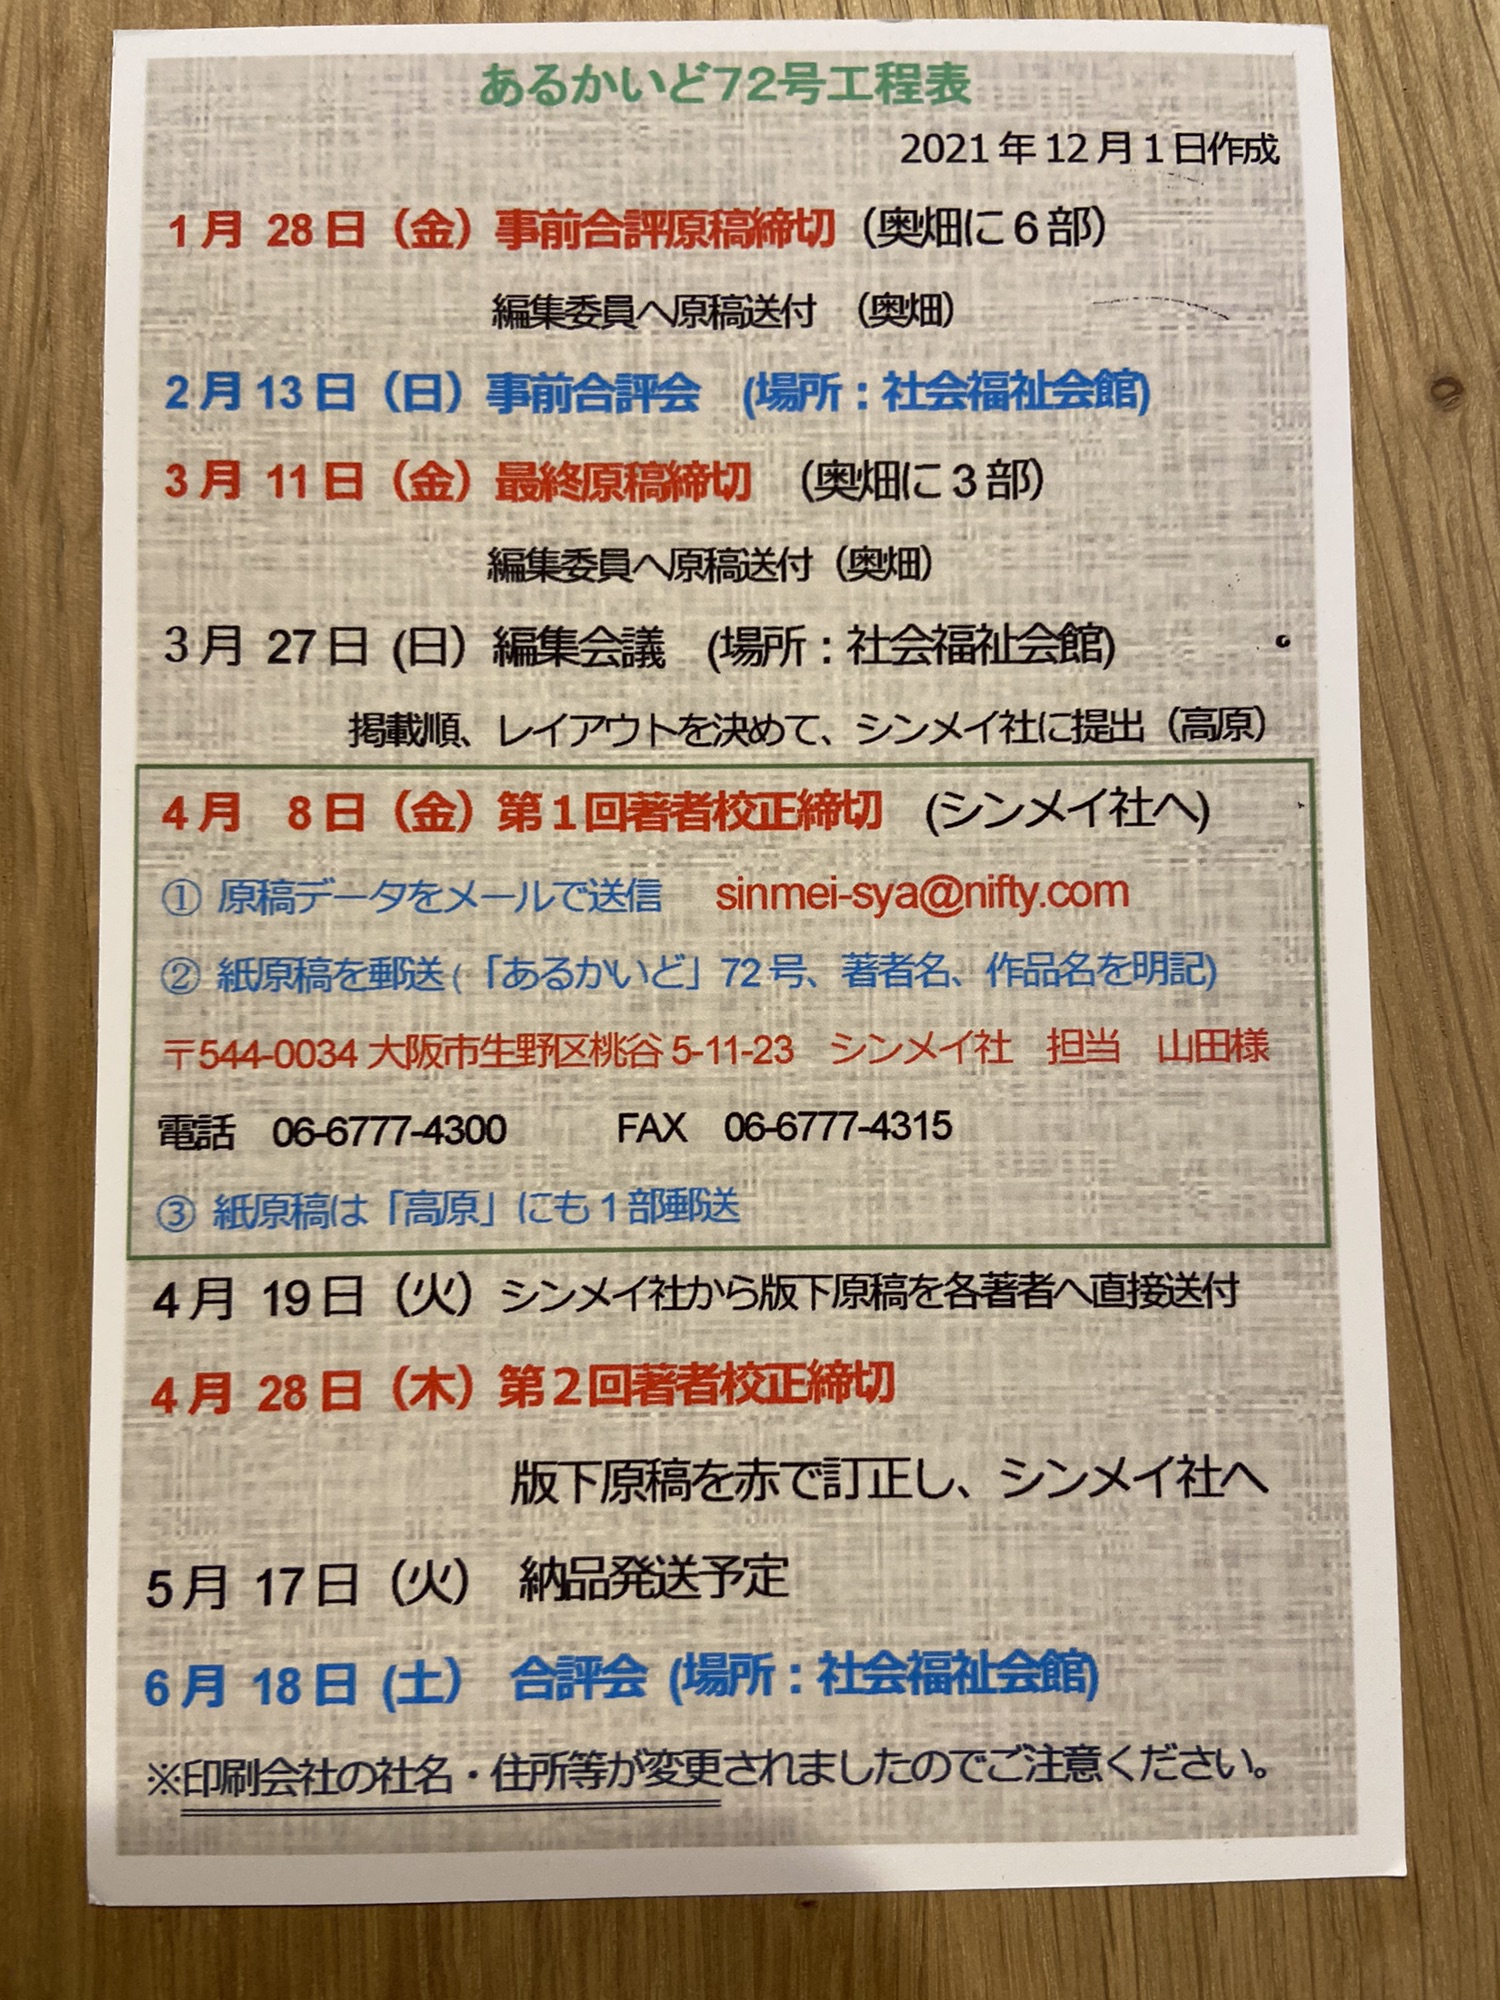 あるかいど72号工程表
2021年12月1日作成
1月 28日（金）事前合評原稿締切（奥畑に6部）
編集委員へ原稿送付　（奥畑）
2月13日（日）事前合評会　(場所：社会福祉会館)
3月 11日（金）最終原稿締切　（奥畑に3部）
編集委員へ原稿送付（奥畑）
3月 27日 (日）編集会議　(場所：社会福祉会館)
掲載順、レイアウトを決めて、シンメイ社に提出（高原）
4月　8日（金）第1回著者校正締切　(シンメイ社へ)
① 原稿データをメールで送信　sinmei-sya@nifty.com
② 紙原稿を郵送 (「あるかいど」72号、著者名、作品名を明記)
〒544-0034 大阪市生野区桃谷 5-11-23　シンメイ社　担当　山田様
電話　06-6777-4300　　　FAX　06-6777-4315
③ 紙原稿は「高原」にも1部郵送
4月 19日（火）シンメイ社から版下原稿を各著者へ直接送付
4月 28日（木）第2回著者校正締切
版下原稿を赤で訂正し、シンメイ社へ
5月 17日（火）　納品発送予定
6月 18日 (土）　合評会 (場所：社会福祉会館)
※印刷会社の社名・住所等が変更されましたのでご注意ください。